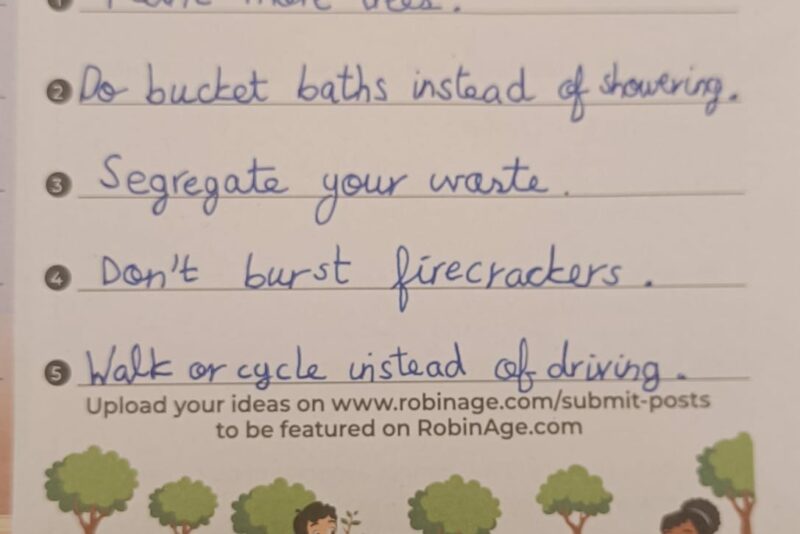 1 more trees.
2 Do bucket baths instead of showering.
3 Segregate your waste.
4 Don't burst firecrackers.
5 Walk or cycle instead of driving.
Upload your ideas on www.robinage.com/submit-posts
to be featured on RobinAge.com